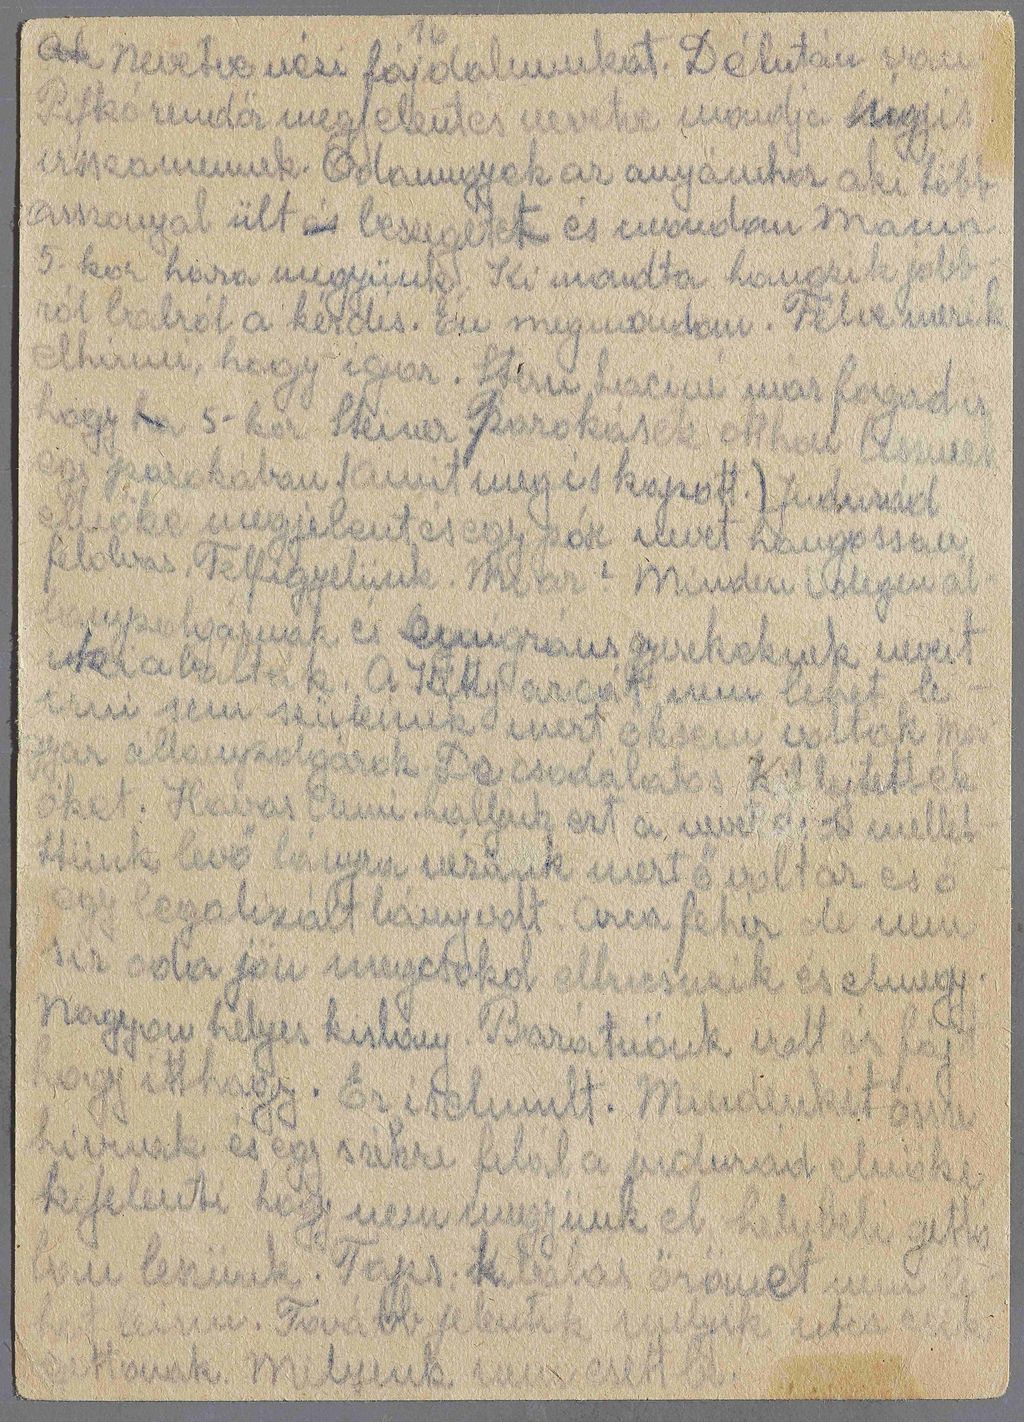 16
nevetve nézi fájdalmunkat. Délután
Pifkó rendőr megjelent és nevetve mondja mégis
visszamennek. Odamegyek az anyámhoz aki több
asszonyal ült és beszegetek és mondom Mama
5-kor haza megyünk. Ki mondta hangzik jobb-
ról balról a kérdés. Én megmondom. Félve merik
elhinni, hogy igaz. Stern már fogad is
hogy 5-kor Steiner otthon lesznek
egy parokában (Amit meg is kapott.) Judenrád
elnöke megjelent és egy pár nevet hangossan
felolvas. Felfigyelünk. Mi az? Minden idegen ál-
lampolgárnak és emigráns gyerekeknek neveit
kiabálták. A Kitty arcát nem lehet le-
irni sem szüleinek mert ők sem voltak ma-
gyar állampolgárok. De csodálatos Kifelejtették
őket. Havas Emmi halljuk ezt a nevet a mellet-
tünk levő lányra nézünk mert ő volt az és ő
egy legalizált lány volt. Arca fehér de nem
sir oda jön megcsokol elbucsuzik és elmegy.
Nagyon helyes kislány. Barátnőnk volt és fáj
hogy itthagy. Ez is elmult. Mindenkit össze
hivnak és egy székre feláll a judenrád elnöke
kijelenti hogy nem megyünk el helybeli gettó
ban leszünk. Taps. örömet nem le-
het leirni. Tovább jelentik melyik utca esik
gettónak. Mélyenk nem esett be.